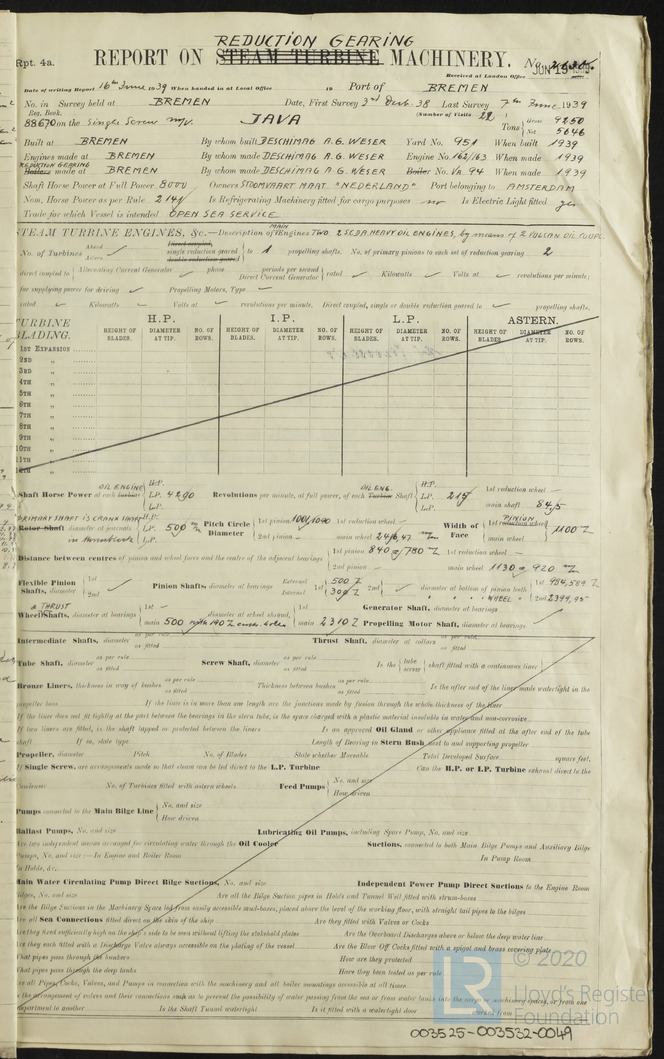 REDUCTION GEARING
Rpt. 4a. REPORT ON STEAM TURBINE MACHINERY. No.
Received at London Office JUN 19 1939
Date of writing Report 16th June 1939 When handed in at Local Office 19 Port of BREMEN
No. in Survey held at BREMEN Date, First Survey 3rd Last Survey 7th June 1939
Reg. Book. (Number of Visits 22)
88670 on the Single Screw m/v. JAVA Tons Gross 9250 Net 5646
Built at BREMEN By whom built DESCHIMAG A.G. WESER Yard No. 951 When built 1939
Engines made at BREMEN By whom made DESCHIMAG A.G. WESER Engine No. 162/163 When made 1939
REDUCTION GEARING
Boilers made at BREMEN By whom made DESCHIMAG A.G. WESER Boiler No. VA 94 When made 1939
Shaft Horse Power at Full Power 8000 Owners STOOMVAART MAAT. "NEDERLAND" Port belonging to AMSTERDAM
Nom. Horse Power as per Rule 2141 Is Refrigerating Machinery fitted for cargo purposes no Is Electric Light fitted yes
Trade for which Vessel is intended OPEN SEA SERVICE
STEAM TURBINE ENGINES, &c.—Description of MAIN Engines TWO 2 S.C.D.A. HEAVY OIL ENGINES, by means of 2 VULCAN OIL COUPL.
No. of Turbines Ahead Astern Direct coupled, single reduction geared double reduction geared to 1 propelling shafts. No. of primary pinions to each set of reduction gearing 2
direct coupled to Alternating Current Generator phase periods per second Direct Current Generator rated Kilowatts Volts at revolutions per minute;
for supplying power for driving Propelling Motors, Type
rated Kilowatts Volts at revolutions per minute. Direct coupled, single or double reduction geared to propelling shafts.
TURBINE BLADING. H.P. I.P. L.P. ASTERN.
HEIGHT OF BLADES. DIAMETER AT TIP. NO. OF ROWS. HEIGHT OF BLADES. DIAMETER AT TIP. NO. OF ROWS. HEIGHT OF BLADES. DIAMETER AT TIP. NO. OF ROWS. HEIGHT OF BLADES. DIAMETER AT TIP. NO. OF ROWS.
1ST EXPANSION
2ND "
3RD "
4TH "
5TH "
6TH "
7TH "
8TH "
9TH "
10TH "
11TH "
12TH "
Shaft Horse Power at each OIL ENGINE turbine H.P. L.P. 4290 L.P. Revolutions per minute, at full power, of each OIL ENG. Turbine Shaft H.P. L.P. 215 L.P. 1st reduction wheel main shaft 84,5
PRIMARY SHAFT IS CRANK SHAFT
Rotor Shaft diameter at journals H.P. L.P. 500 L.P. Pitch Circle Diameter 1st pinion 1001/1090 2nd pinion 1st reduction wheel main wheel Width of Face PINION 1st reduction wheel main wheel 1100
Distance between centres of pinion and wheel faces and the centre of the adjacent bearings 1st pinion 840 & 780 2nd pinion 1st reduction wheel main wheel 1130 & 920
Flexible Pinion Shafts, diameter 1st 2nd Pinion Shafts, diameter at bearings External Internal 1st 500 300 2nd diameter at bottom of pinion teeth 1st 984,589
" " " WHEEL " 2nd 2399,95
& THRUST
Wheel Shafts, diameter at bearings 1st main 500 with diameter at wheel shroud, 1st main 2310 Generator Shaft, diameter at bearings Propelling Motor Shaft, diameter at bearings
Intermediate Shafts, diameter as per rule as fitted Thrust Shaft, diameter at collars as per rule as fitted
Tube Shaft, diameter as per rule as fitted Screw Shaft, diameter as per rule as fitted Is the tube screw shaft fitted with a continuous liner
Bronze Liners, thickness in way of bushes as per rule as fitted Thickness between bushes as per rule as fitted Is the after end of the liner made watertight in the
propeller boss If the liner is in more than one length are the junctions made by fusion through the whole thickness of the liner
If the liner does not fit tightly at the part between the bearings in the stern tube, is the space charged with a plastic material insoluble in water and non-corrosive
If two liners are fitted, is the shaft lapped or protected between the liners Is an approved Oil Gland or other appliance fitted at the after end of the tube
shaft If so, state type Length of Bearing in Stern Bush next to and supporting propeller
Propeller, diameter Pitch No. of Blades State whether Moveable Total Developed Surface square feet.
If Single Screw, are arrangements made so that steam can be led direct to the L.P. Turbine Can the H.P. or I.P. Turbine exhaust direct to the
Condenser No. of Turbines fitted with astern wheels Feed Pumps No. and size How driven
Pumps connected to the Main Bilge Line No. and size How driven
Ballast Pumps, No. and size Lubricating Oil Pumps, including Spare Pump, No. and size
Are two independent means arranged for circulating water through the Oil Cooler Suctions, connected to both Main Bilge Pumps and Auxiliary Bilge
Pumps, No. and size:—In Engine and Boiler Room In Pump Room
In Holds, &c.
Main Water Circulating Pump Direct Bilge Suctions, No. and size Independent Power Pump Direct Suctions to the Engine Room
Bilges, No. and size Are all the Bilge Suction pipes in Holds and Tunnel Well fitted with strum-boxes
Are the Bilge Suctions in the Machinery Space led from easily accessible mud-boxes, placed above the level of the working floor, with straight tail pipes to the bilges
Are all Sea Connections fitted direct on the skin of the ship Are they fitted with Valves or Cocks
Are they fixed sufficiently high on the ship's side to be seen without lifting the stokehold plates Are the Overboard Discharges above or below the deep water line
Are they each fitted with a Discharge Valve always accessible on the plating of the vessel Are the Blow Off Cocks fitted with a spigot and brass covering plate
What pipes pass through the bunkers How are they protected
What pipes pass through the deep tanks Have they been tested as per rule
Are all Pipes, Cocks, Valves, and Pumps in connection with the machinery and all boiler mountings accessible at all times
Is the arrangement of valves and their connections such as to prevent the possibility of water passing from the sea or from water tanks into the cargo or machinery spaces, or from one
compartment to another Is the Shaft Tunnel watertight Is it fitted with a watertight door worked from
© 2020
LR
Lloyd's Register
Foundation
003525-003532-0049